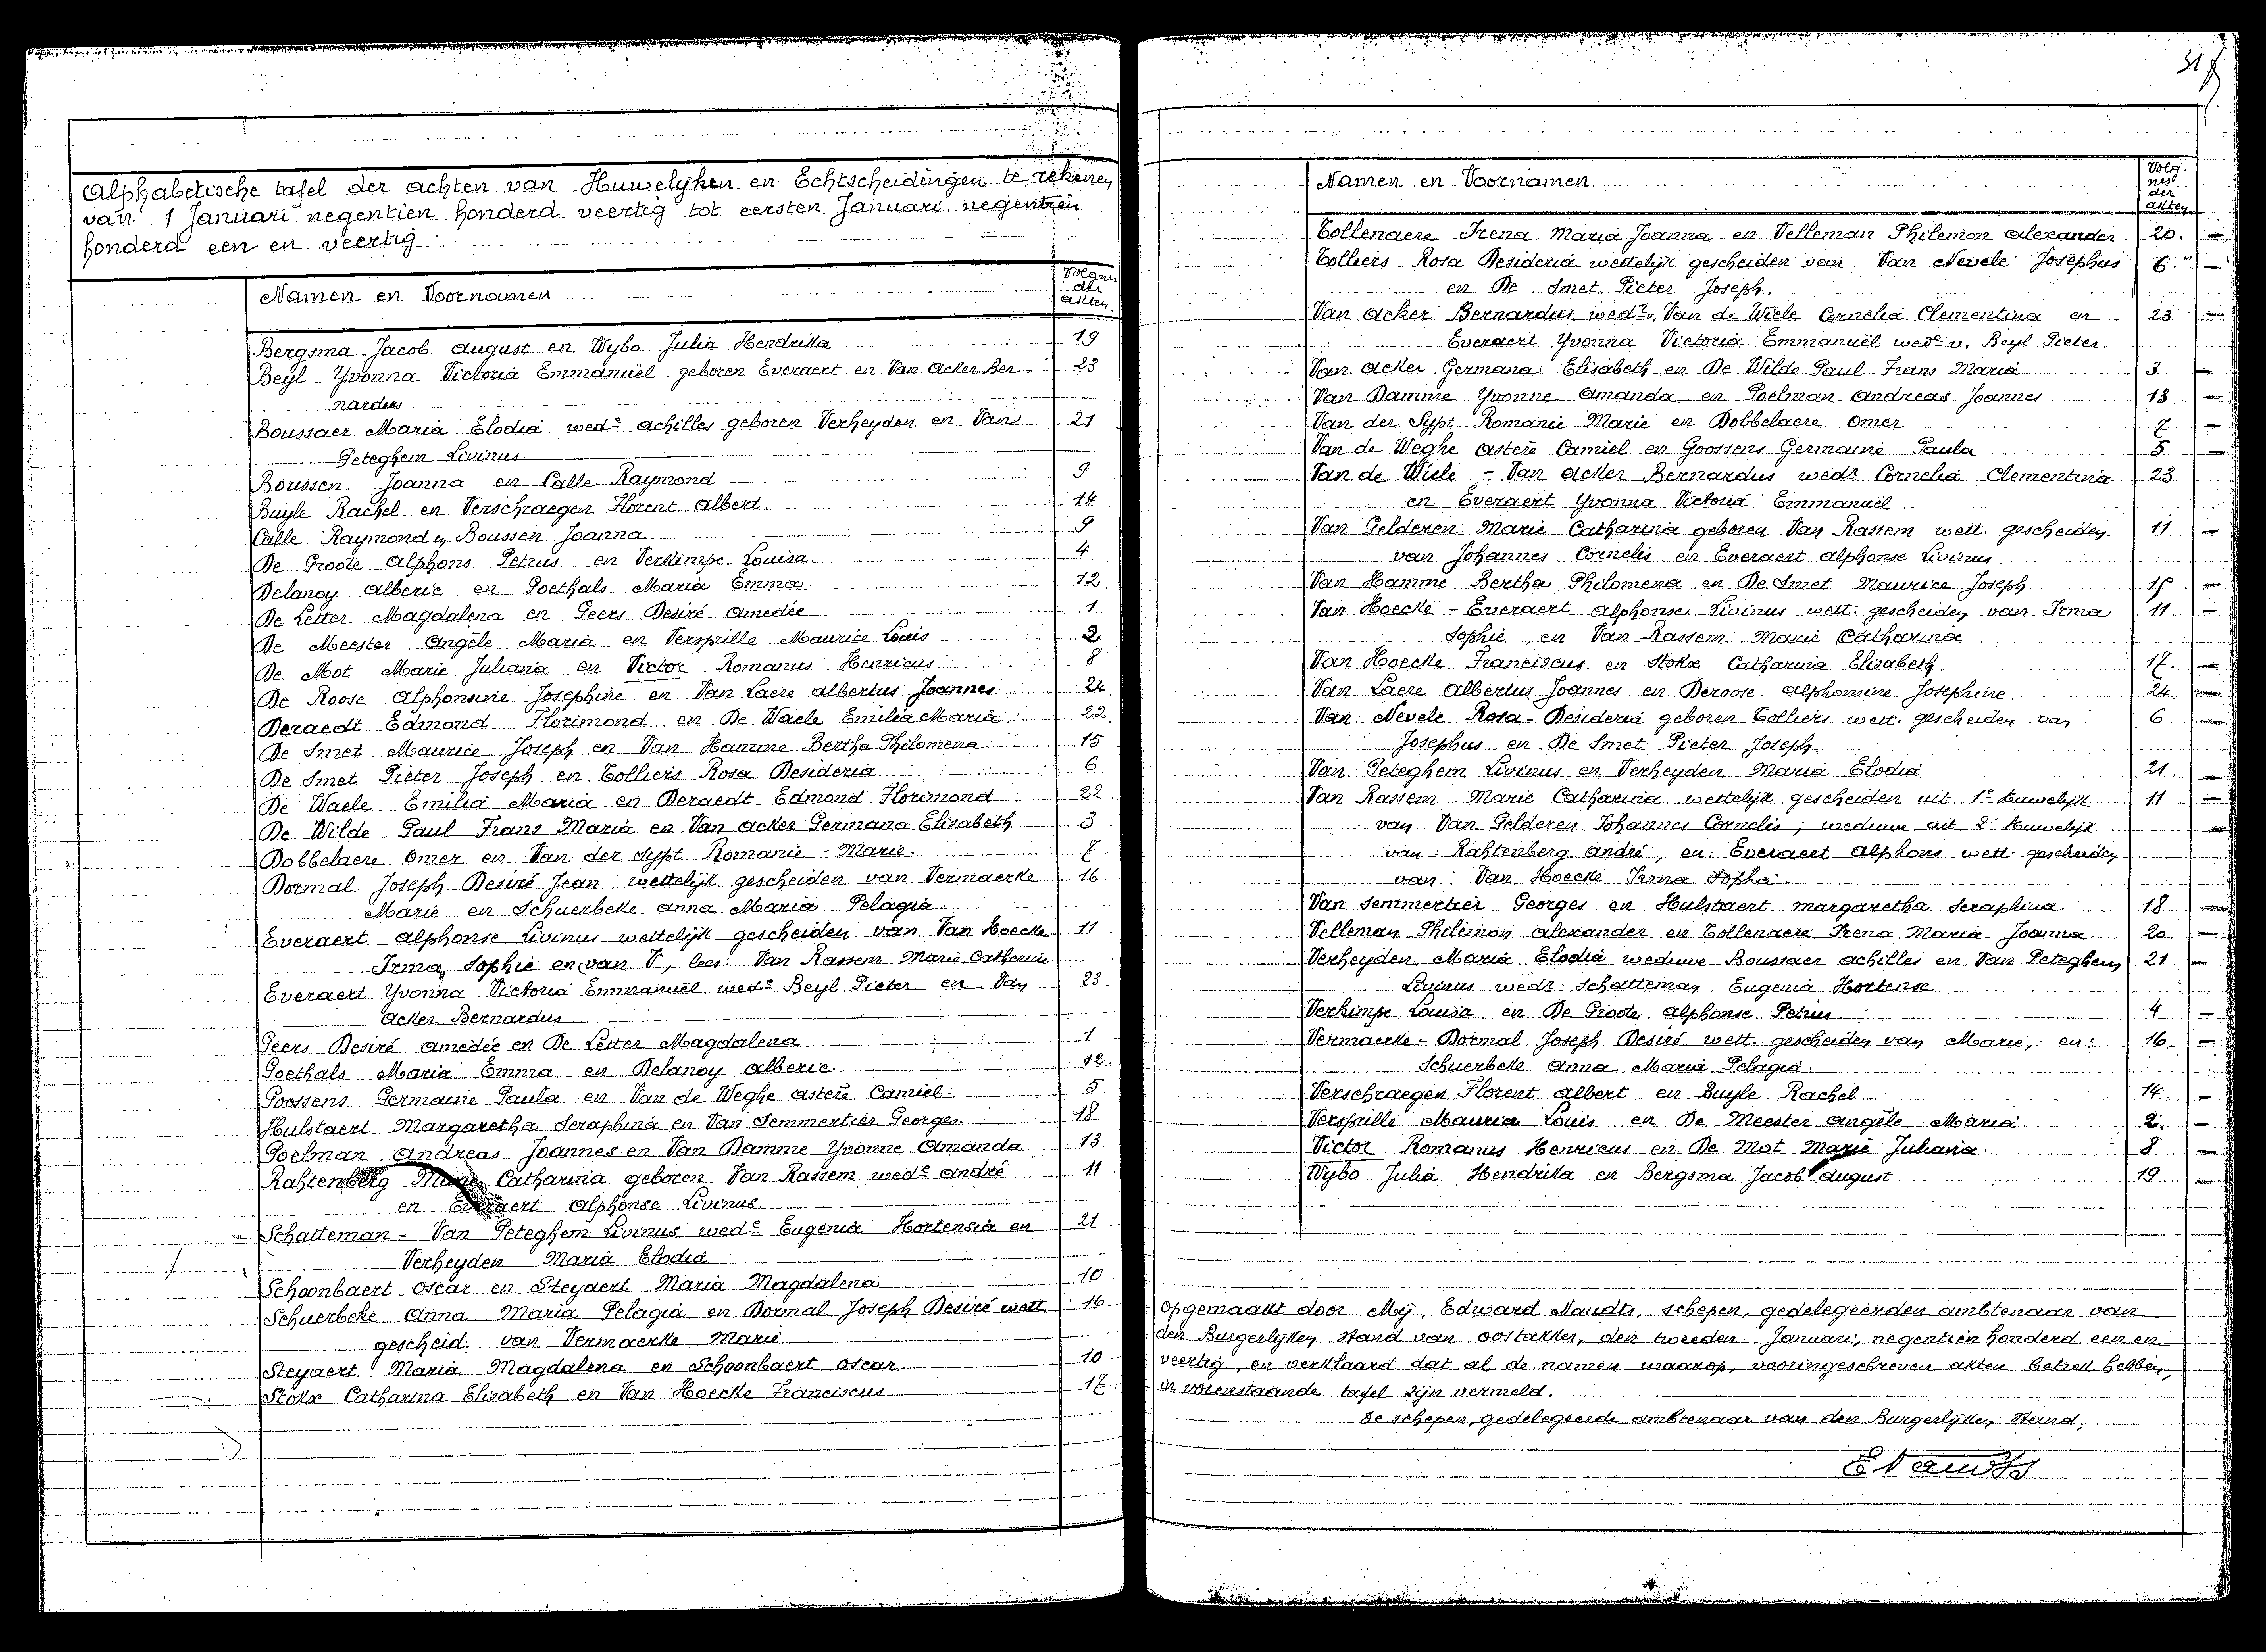 Alphabetische tafel der achten van Huwelyken en Echtscheidingen te rekenen
van 1 Januari negentien honderd veertig tot eersten Januari negentien
honderd een en veertig
Namen en Voornamen Volgnrs der akten
Bergsma Jacob august en Wybo Julia Hendrika 19
Beyl Yvonna Victoria Emmanuël geboren Everaert en Van Acker Ber- 23
nardus
Boussaer Maria Elodia wede achilles geboren Verheyden en Van 21
Peteghem Livinus
Boussen Joanna en Calle Raymond 9
Buyle Rachel en Verschraegen Florent Albert 14
Calle Raymond en Boussen Joanna 9
De Groote Alphons Petrus en Verkimpe Louisa 4
Delanoy Alberic en Goethals Maria Emma 12
De Letter Magdalena en Geers Desiré Amedée 1
De Meester Angèle Maria en Versprille Maurice Louis 2
De Mot Marie Juliana en Victor Romanus Henricus 8
De Roose Alphonsine Josephine en Van Laere albertus Joannes 24
Deraedt Edmond Florimond en De Waele Emilia Maria 22
De Smet Maurice Joseph en Van Hamme Bertha Philomena 15
De Smet Pieter Joseph en Tolliers Rosa Desideria 6
De Waele Emilia Maria en Deraedt Edmond Florimond 22
De Wilde Paul Frans Maria en Van acker Germana Elisabeth 3
Dobbelaere Omer en Van der Sypt Romanie - Marie 7
Dormal Joseph Desiré Jean wettelijk gescheiden van Vermaerke 16
Marie en Schuerbeke anna Maria Pelagia
Everaert Alphonse Livinus wettelijk gescheiden van Van Hoecke 11
Irma Sophie en van V, lees: Van Rassem Marie Catherine
Everaert Yvonna Victoria Emmanuël wede Beyl Pieter en Van 23
Acker Bernardus
Geers Desiré Amedée en De Letter Magdalena 1
Goethals Maria Emma en Delanoy Alberic 12
Goossens Germaine Paula en Van de Weghe Asterie Camiel 5
Hulstaert Margaretha Seraphina en Van Semmertier Georges 18
Poelman Andreas Joannes en Van Damme Yvonne Amanda 13
Rahtenberg Marie Catharina geboren Van Rassem wede André 11
en Everaert Alphonse Livinus
Schatteman - Van Peteghem Livinus wede Eugenia Hortensia en 21
Verheyden Maria Elodia
Schoonbaert Oscar en Steyaert Maria Magdalena 10
Schuerbeke Anna Maria Pelagia en Dormal Joseph Desiré wett. 16
gescheid. van Vermaerke Marie
Steyaert Maria Magdalena en Schoonbaert Oscar 10
Stokx Catharina Elisabeth en Van Hoecke Franciscus 17
Namen en Voornamen Volg. nrs der akten
Tollenaere Irena Maria Joanna en Velleman Philemon Alexander 20
Tolliers Rosa Desideria wettelijk gescheiden van Van Nevele Josephus 6
en De Smet Pieter Joseph
Van Acker Bernardus wedr v. Van de Wiele Cornelia Clementina en 23
Everaert Yvonna Victoria Emmanuël wede v. Beyl Pieter
Van Acker Germana Elisabeth en De Wilde Paul Frans Maria 3
Van Damme Yvonne Amanda en Poelman Andreas Joannes 13
Van der Sypt Romanie Marie en Dobbelaere Omer 7
Van de Weghe Asterie Camiel en Goossens Germaine Paula 5
Van de Wiele - Van Acker Bernardus wedr Cornelia Clementina 23
en Everaert Yvonna Victoria Emmanuël
Van Gelderen Marie Catharina geboren Van Rassem wett. gescheiden 11
van Johannes Cornelis en Everaert Alphonse Livinus
Van Hamme Bertha Philomena en De Smet Maurice Joseph 15
Van Hoecke - Everaert Alphonse Livinus wett. gescheiden van Irma 11
Sophie, en Van Rassem Marie Catharina
Van Hoecke Franciscus en Stokx Catharina Elisabeth 17
Van Laere Albertus Joannes en Deroose Alphonsine Josephine 24
Van Nevele Rosa-Desideria geboren Tolliers wett. gescheiden van 6
Josephus en De Smet Pieter Joseph
Van Peteghem Livinus en Verheyden Maria Elodia 21
Van Rassem Marie Catharina wettelijk gescheiden uit 1e Huwelijk 11
van Van Gelderen Johannes Cornelis; weduwe uit 2e Huwelijk
van Rahtenberg André, en: Everaert Alphons wett. gescheiden
van Van Hoecke Irma Sophia
Van Semmertier Georges en Hulstaert Margaretha Seraphina 18
Velleman Philemon Alexander en Tollenaere Irena Maria Joanna 20
Verheyden Maria Elodia weduwe Boussaer Achilles en Van Peteghem 21
Livinus wedr Schatteman Eugenia Hortense
Verkimpe Louisa en De Groote Alphonse Petrus 4
Vermaerke - Dormal Joseph Desiré wett. gescheiden van Marie, en: 16
Schuerbeke Anna Maria Pelagia
Verschraegen Florent Albert en Buyle Rachel 14
Versprille Maurice Louis en De Meester Angèle Maria 2
Victor Romanus Henricus en De Mot Marie Juliana 8
Wybo Julia Hendrika en Bergsma Jacob August 19
Opgemaakt door Mij, Edward Naudts, schepen, gedelegeerden ambtenaar van
den Burgerlijken Stand van Oostakker, den tweeden Januari, negentien honderd een en
veertig, en verklaard dat al de namen waarop, vooringeschreven akten betrek hebben,
in vorenstaande tafel zijn vermeld.
De schepen, gedelegeerde ambtenaar van den Burgerlijken Stand,
E Naudts